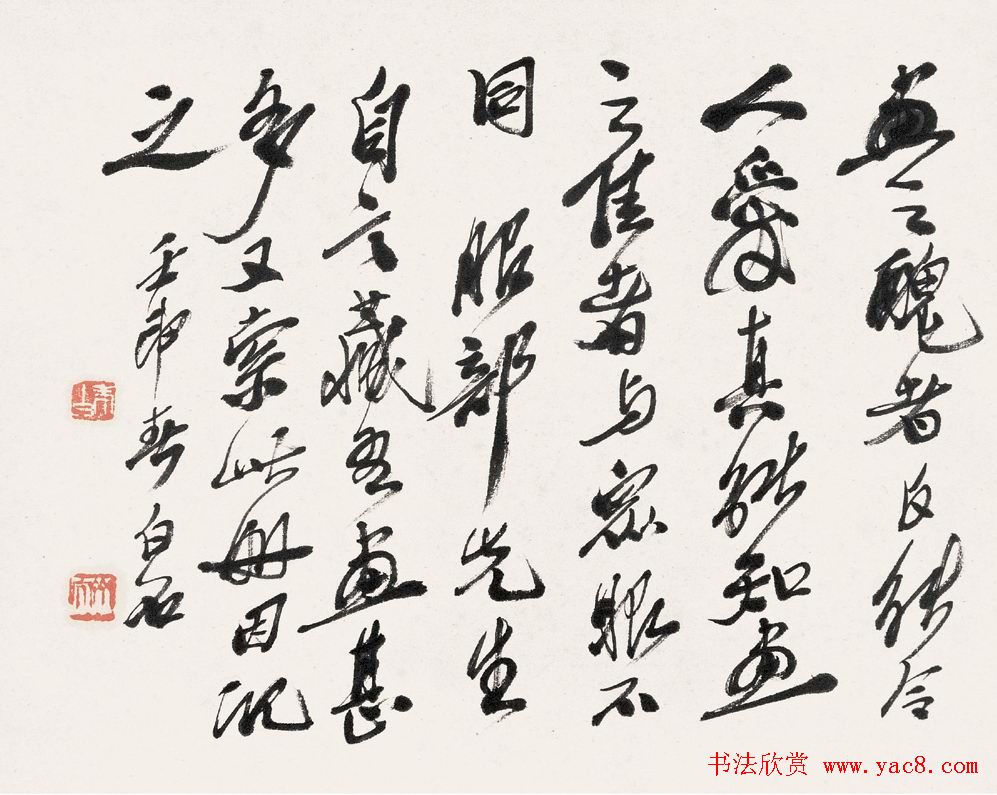 畫之醜者反能令
人愛真能知畫
之佳者与衆眼不
同 服部先生
自言藏吾畫甚
多又索此册因記
之 壬申春白石
书法欣赏 www.yac8.com